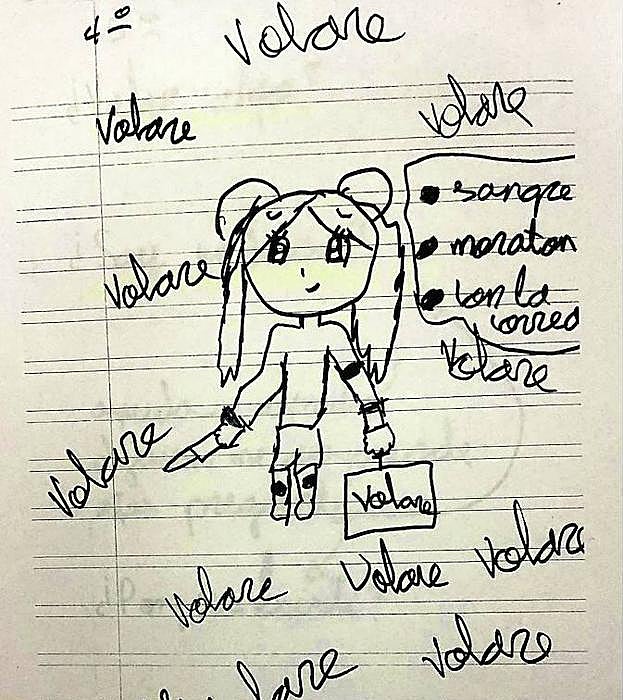 4º
Volare
Volare
Volare
• sangre
• moraton
• con la
correa
Volare
Volare
Volare
Volare
Volare
Volare
Volare
Volare
Volare